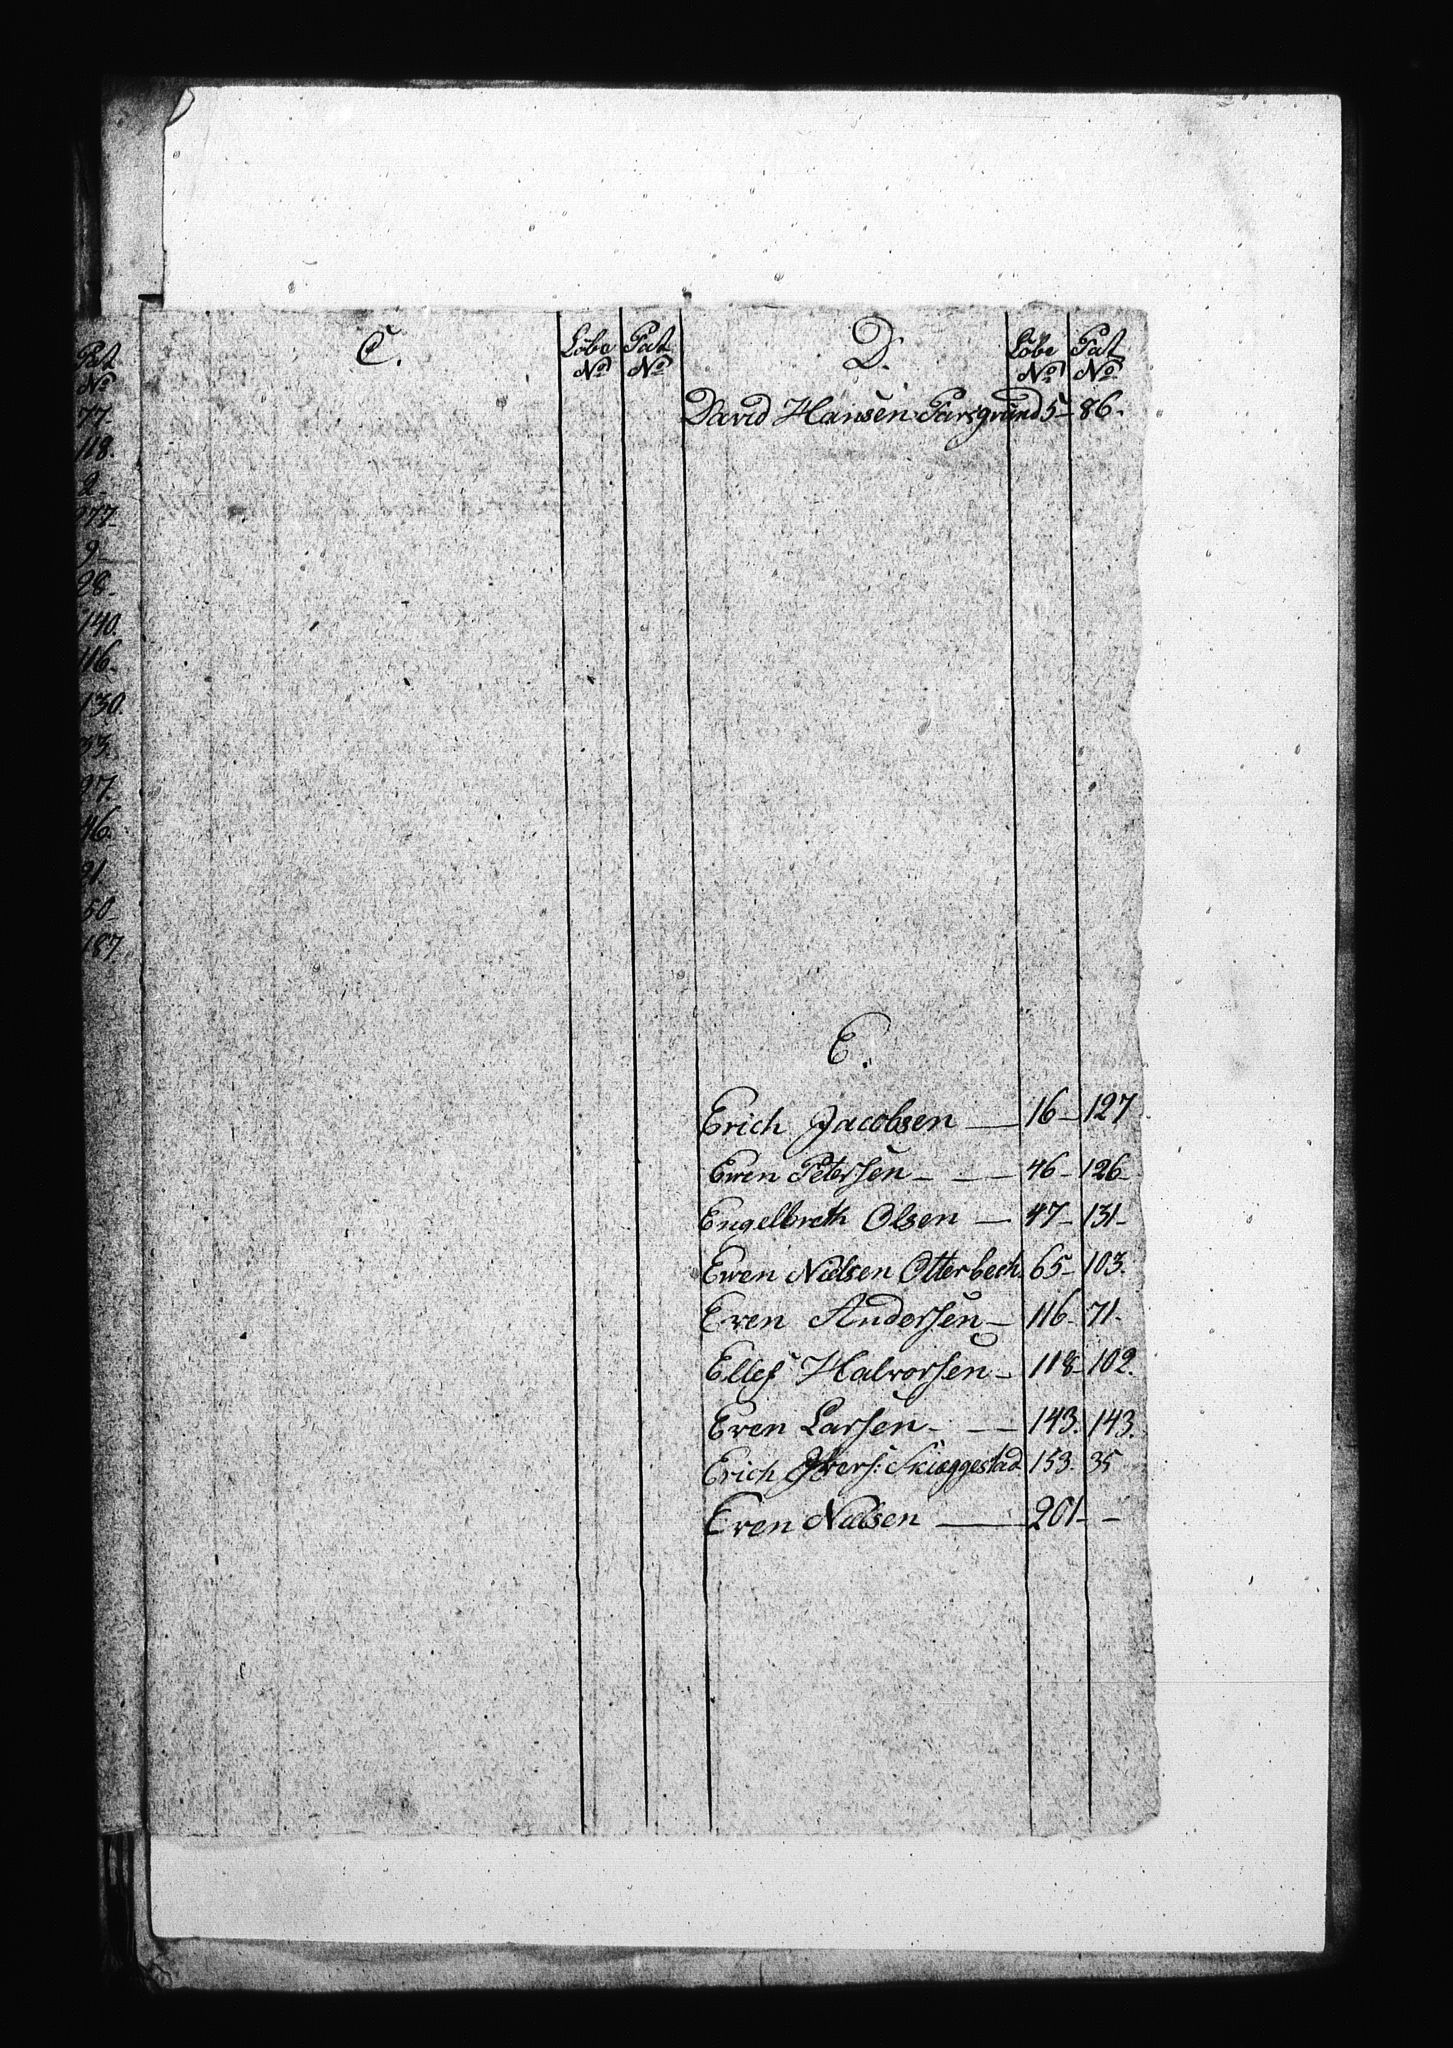 Pat
No
77.
118.
2.
277.
9.
28.
140.
116.
130.
33.
97.
46.
91
50.
187.
C. Löbe Pat
No No
D. Löbe Pat
No No
David Hansen Parsgrund 5- 86.
E.
Erich Jacobsen — 16- 127
Ewen Petersen - — 46- 126-
Engelbreth Olsen — 47- 131-
Ewen Nielsen Otterbech 65- 103.
Even Andersen — 116. 71.
Ellef Halvorsen - 118- 102.
Even Larsen - — 143. 143.
Erich Ivers: Skiæggestad 153. 35
Even Nielsen — 201- -